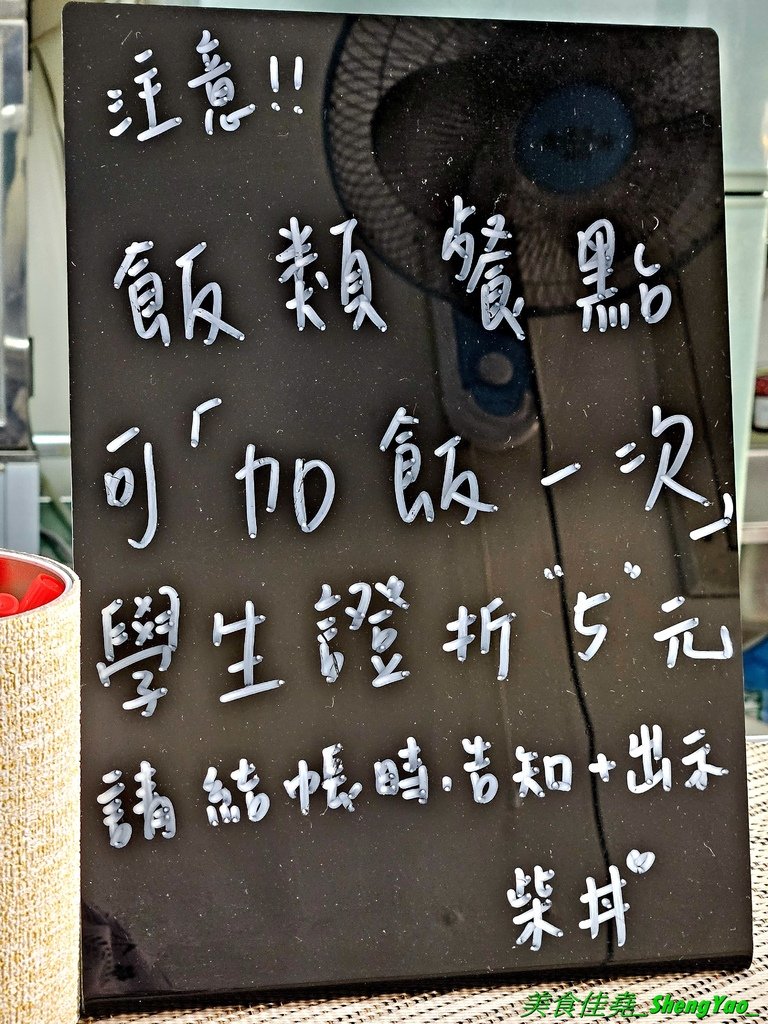 注意!!
飯類餐點
可「加飯一次」
學生證折"5"元
請結帳時.告知+出示
柴丼
美食佳堯_ShengYao_